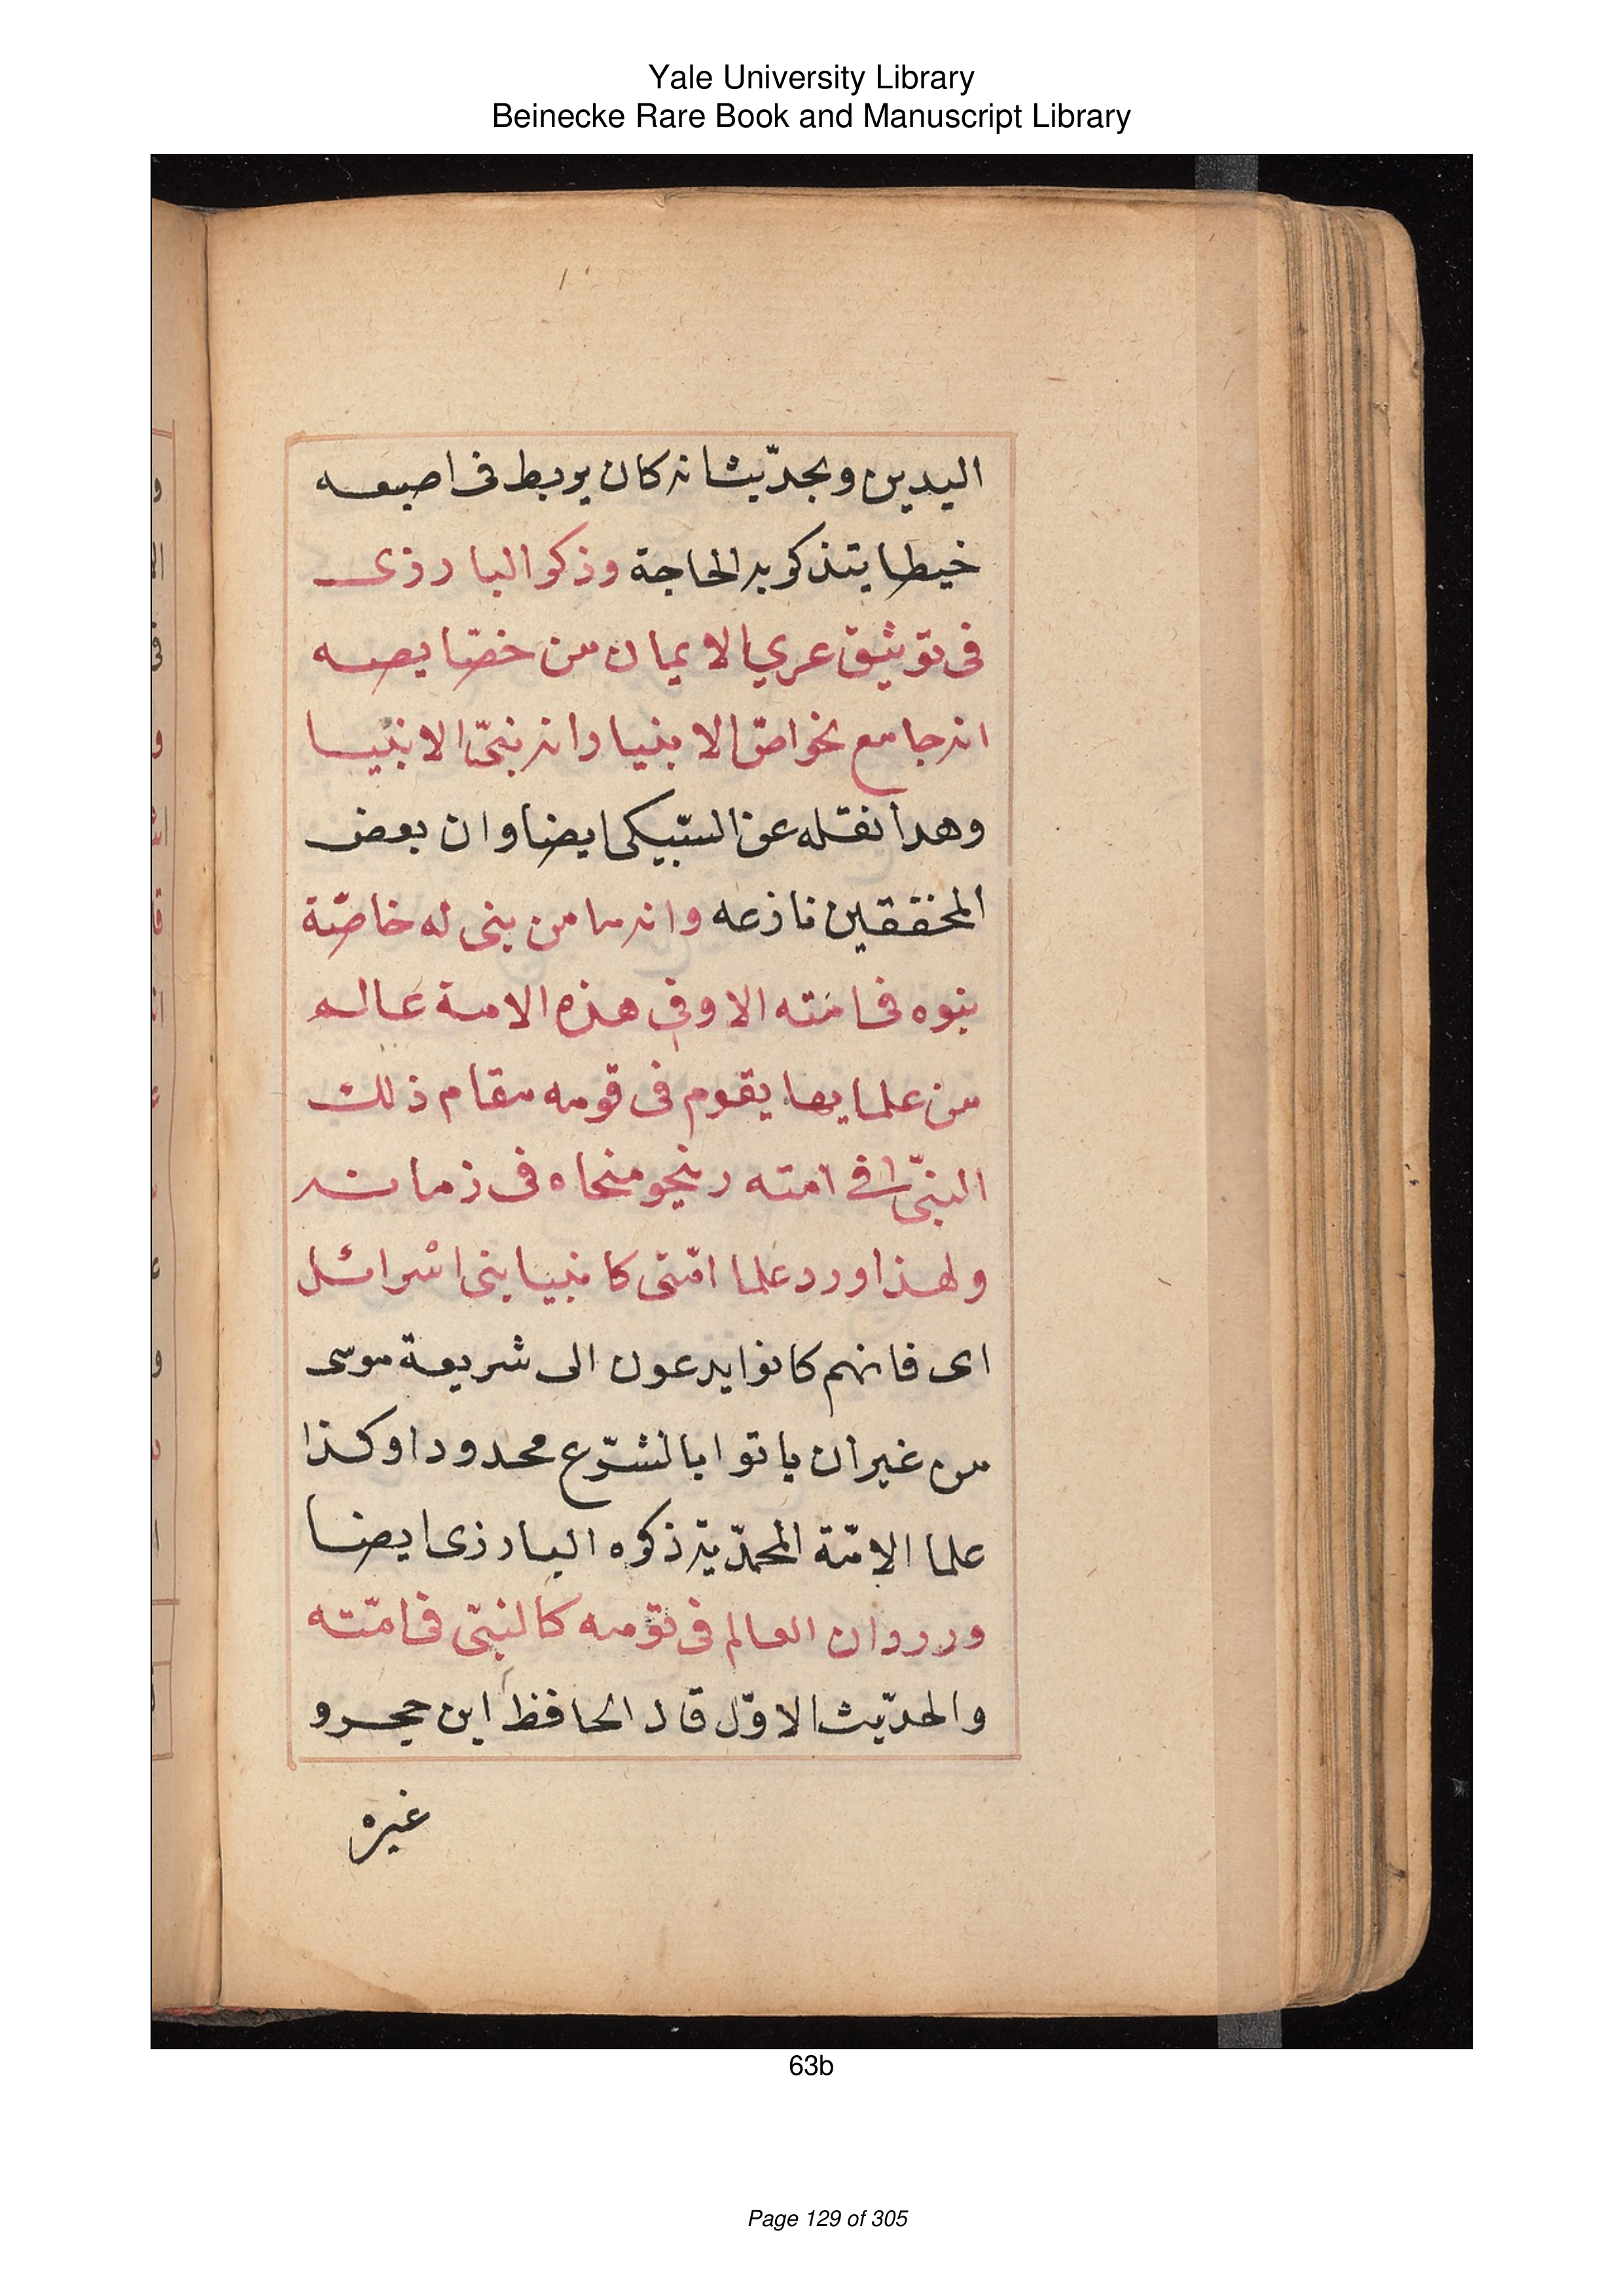 Yale University Library
Beinecke Rare Book and Manuscript Library
اليدين وبجديث انه كان يربط فى اصبعه
خيطا يتذكر به الحاجة وذكر البارزى
فى توثيق عري الايمان من خصّايصه
انه جامع لخواصّ الانبيا وانه نبىّ الانبيا
وهدا نقله عن السّبكى ايضا وان بعض
المحققين نازعه وانه ما من نبى له خاصّة
نبوه فى امّته الا وفى هذه الامة عالم
من علمايها يقوم فى قومه مقام ذلك
النبىّ فى امته وينحو منحاه فى زمانه
ولهذا ورد علما امّتى كانبيا بنى اسرائل
اى فانهم كانوا يدعون الى شريعة موسى
من غير ان ياتوا بالشرّع محدودا وكذا
علما الامّة المحمدّية ذكره البارزى ايضا
وورد ان العالم فى قومه كالنبىّ فى امّته
والحدّيث الاوّل قال الحافظ ابن حجر و
غيره
63b
Page 129 of 305